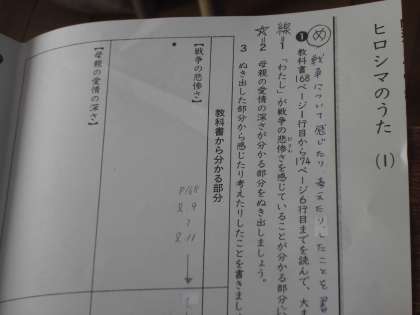 ヒロシマのうた (1)
め 戦争について感じたり、考えたりしたことを
❶ 教科書168ページ1行目から174ページ6行目までを読んで、
線 1 「わたし」が戦争の悲惨さを感じていることが分かる部分
2 母親の愛情の深さが分かる部分をぬき出しましょう。
3 ぬき出した部分から感じたり考えたりしたことを書きまし
教科書から分かる部分
【戦争の悲惨さ】
P168
【母親の愛情の深さ】